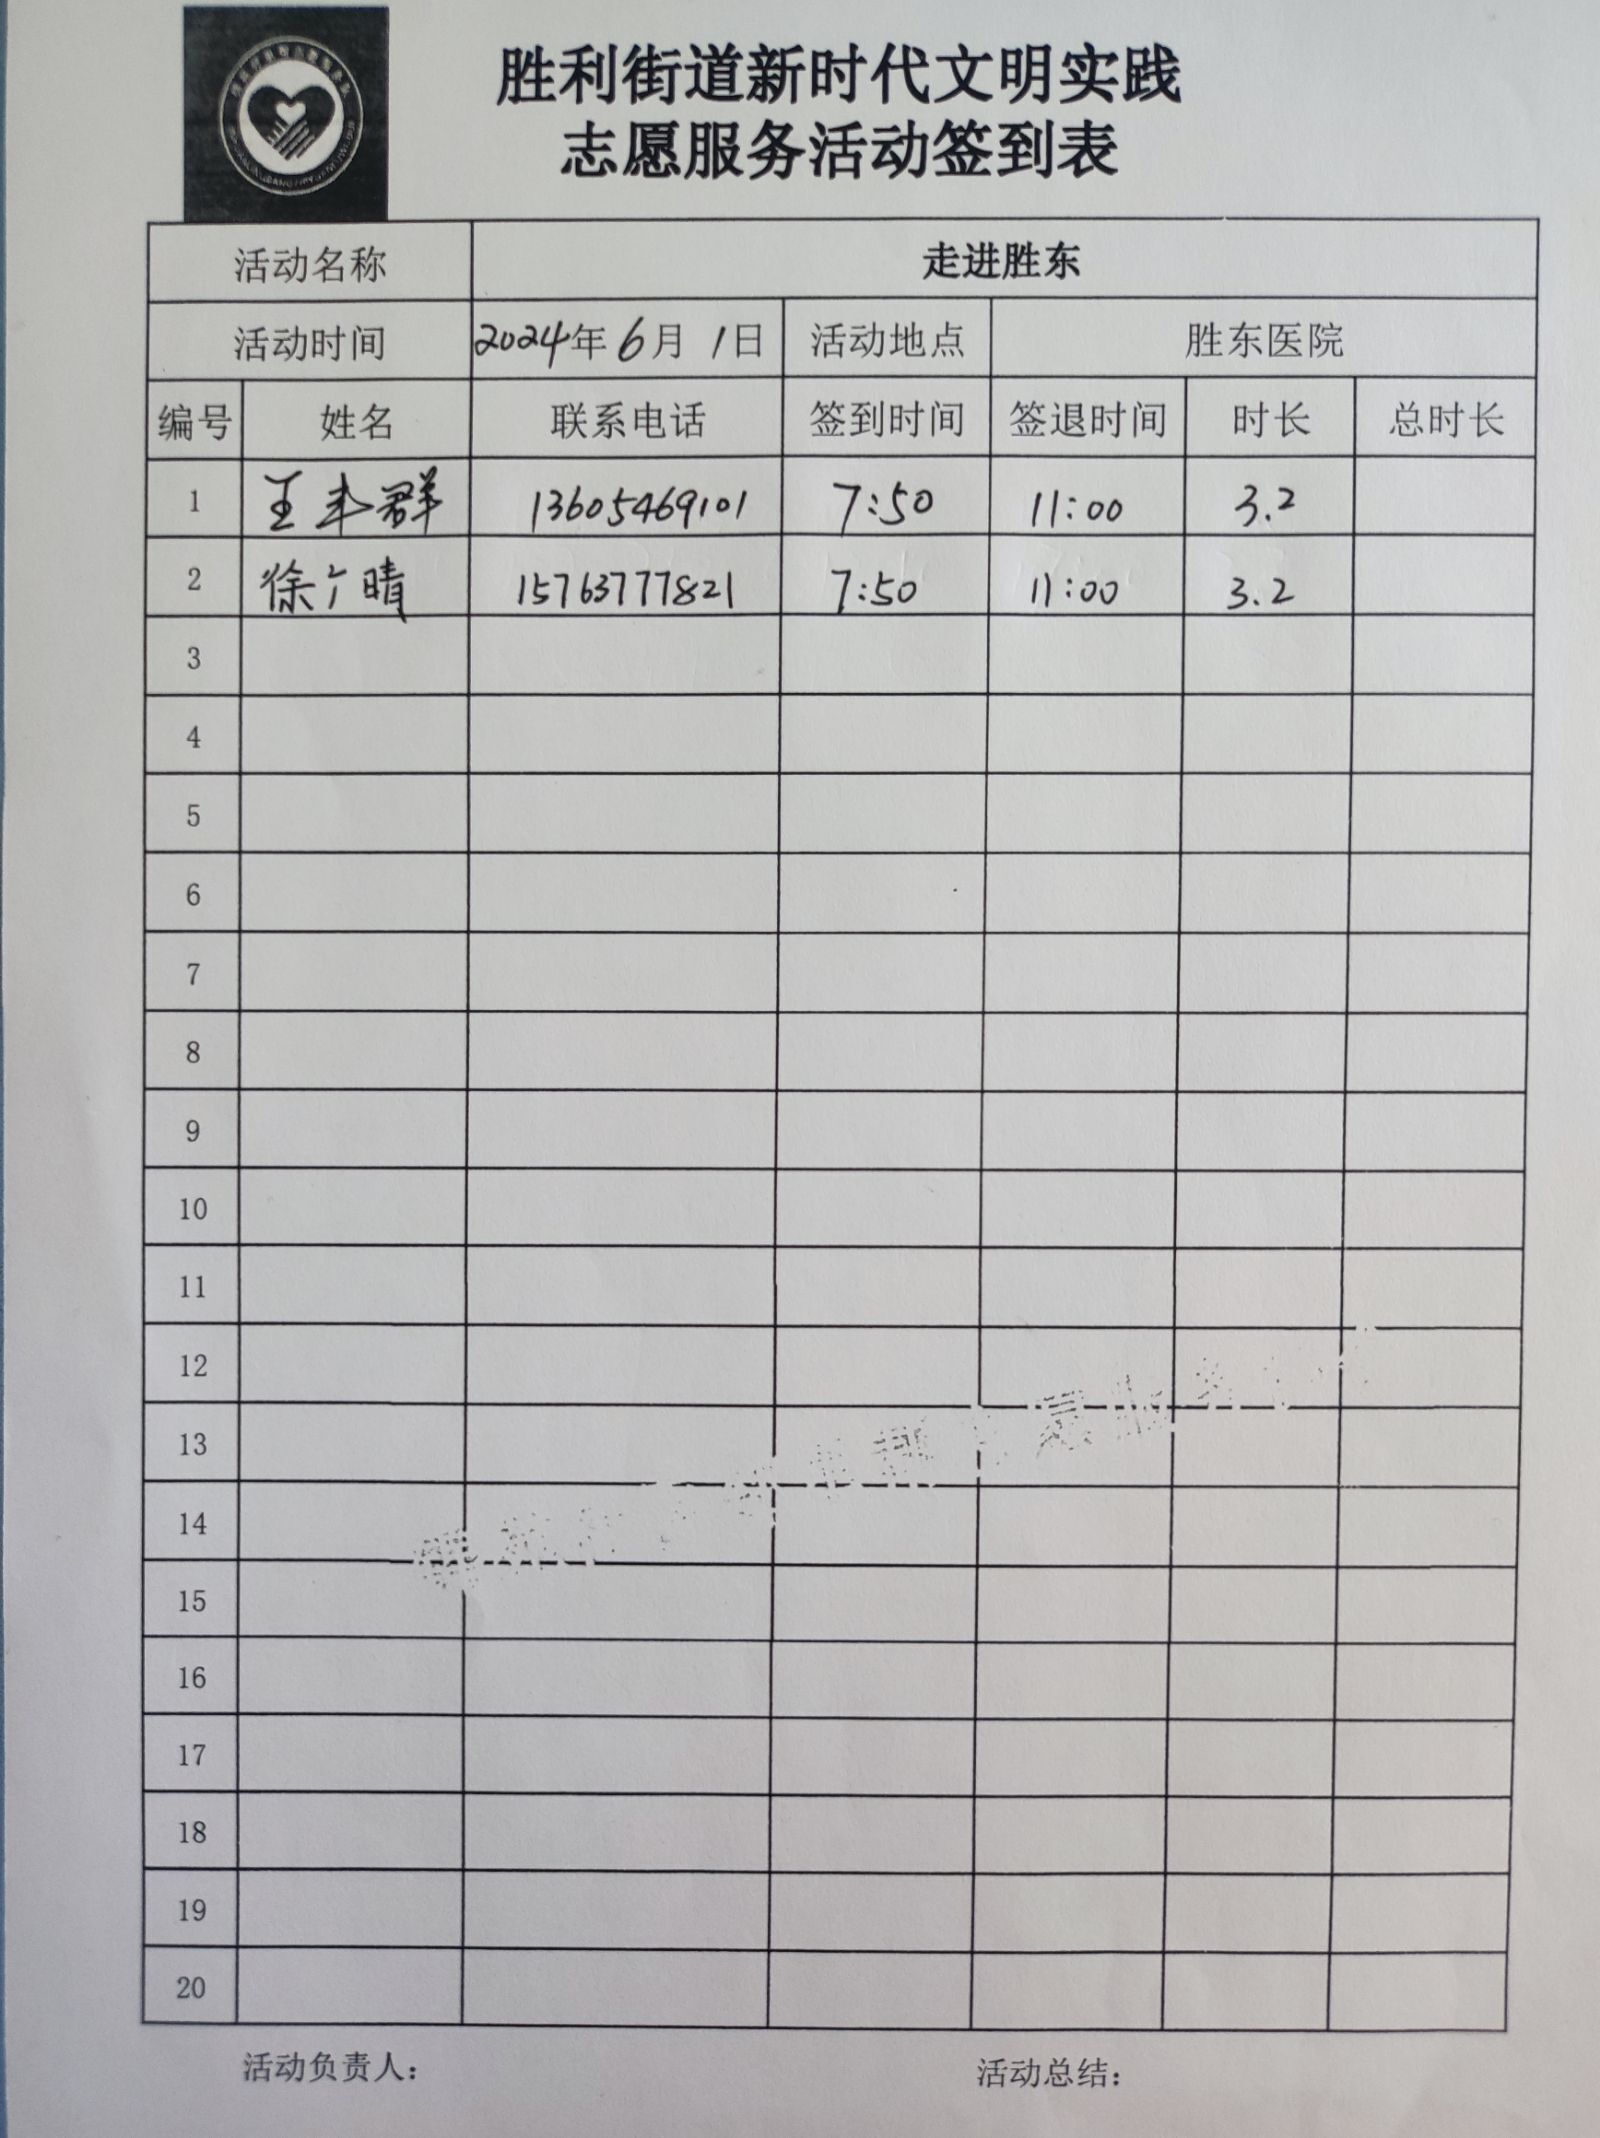 胜利街道新时代文明实践
志愿服务活动签到表
活动名称 走进胜东
活动时间 2024年6月1日 活动地点 胜东医院
编号 姓名 联系电话 签到时间 签退时间 时长 总时长
1 王丰群 13605469101 7:50 11:00 3.2
2 徐广晴 15763777821 7:50 11:00 3.2
3
4
5
6
7
8
9
10
11
12
13
14
15
16
17
18
19
20
活动负责人： 活动总结：